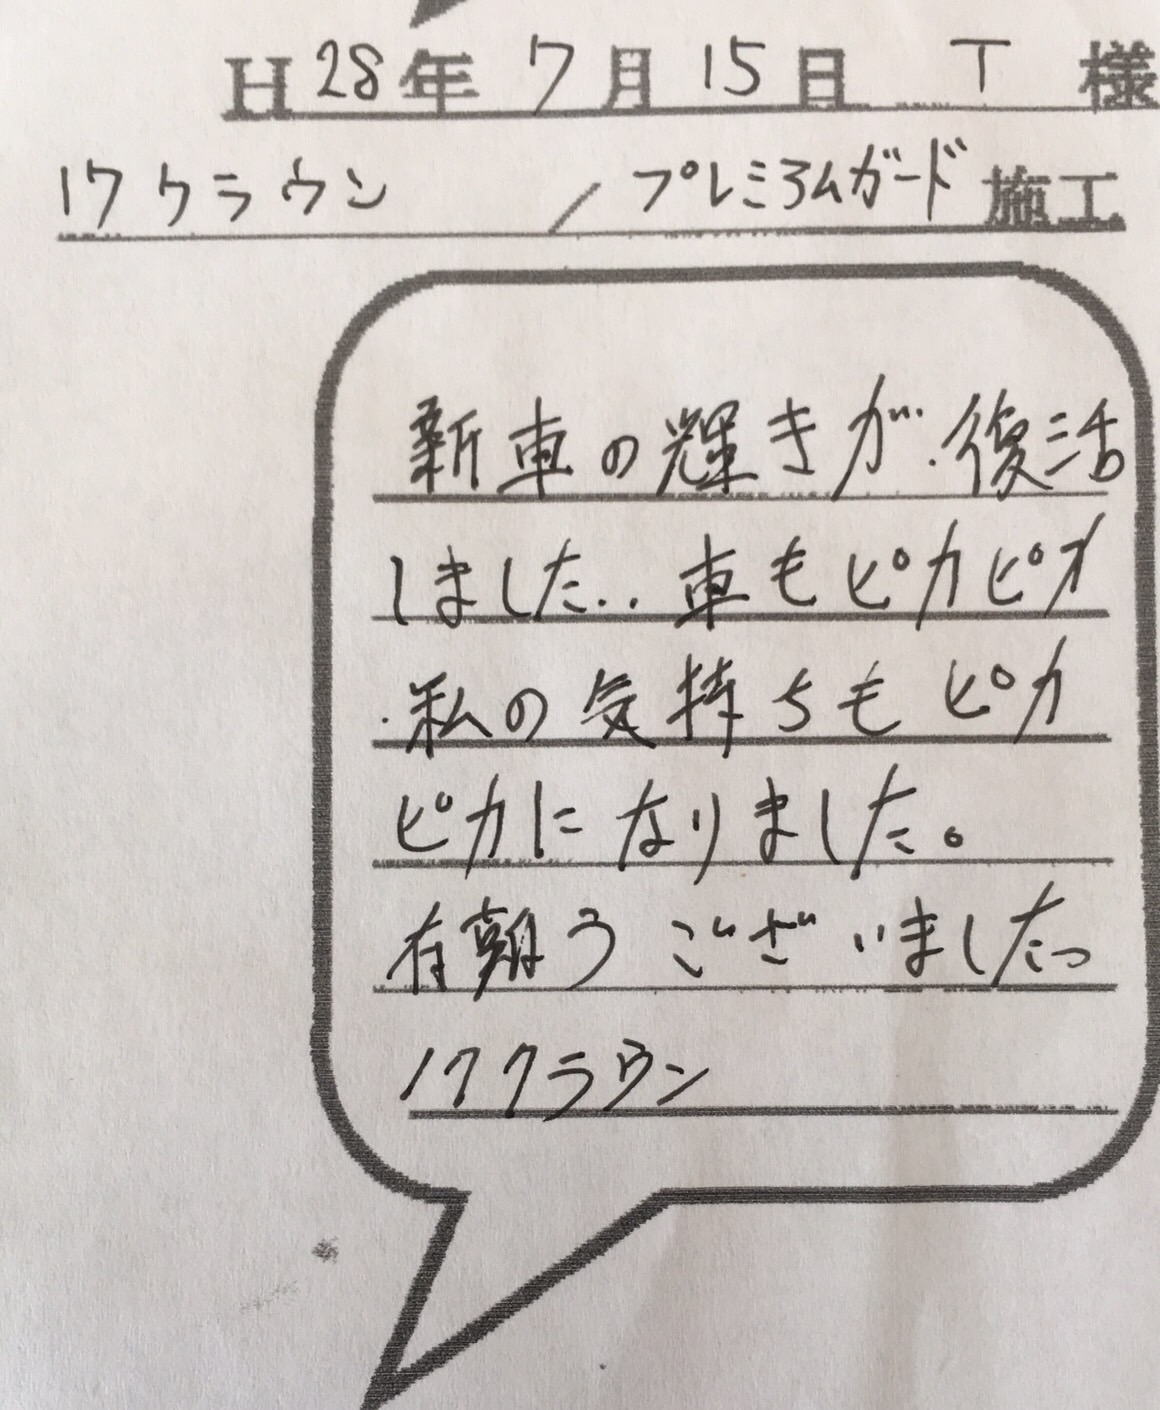 H 28年 7月 15日 T 様
17クラウン / プレミアムガード 施工
新車の輝きが.復活
しました.. 車もピカピカ
.私の気持ちもピカ
ピカになりました。
有難うございました。
17クラウン